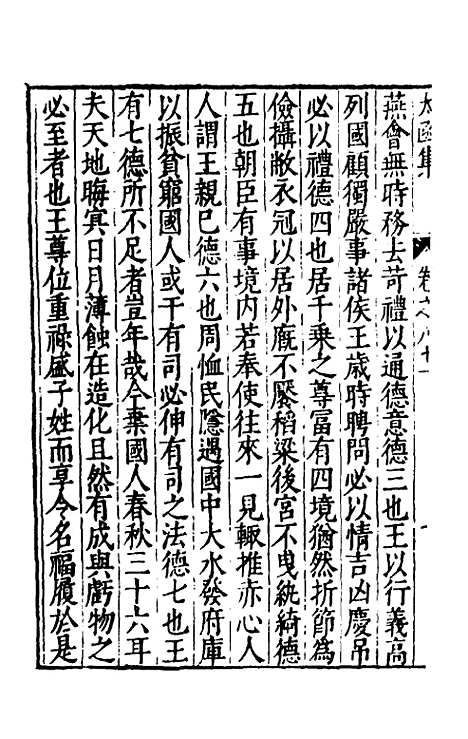 太函集 卷之八十一
燕會無時務去苛禮以通德意德三也王以行義高
列國顧獨嚴事諸侯王歲時聘問必以情吉凶慶吊
必以禮德四也居千乘之尊富有四境猶然折節為
儉攝敝衣冠以居外廐不饜稻粱後宮不曳紈綺德
五也朝臣有事境内若奉使往來一見輙推赤心人
人謂王親已德六也周恤民隱遇國中大水發府庫
以振貧窮國人或干有司必伸有司之法德七也王
有七德所不足者豈年哉今棄國人春秋三十六耳
夫天地晦㝠日月薄蝕在造化且然有成與虧物之
必至者也王尊位重祿盛子姓而享令名福履於是